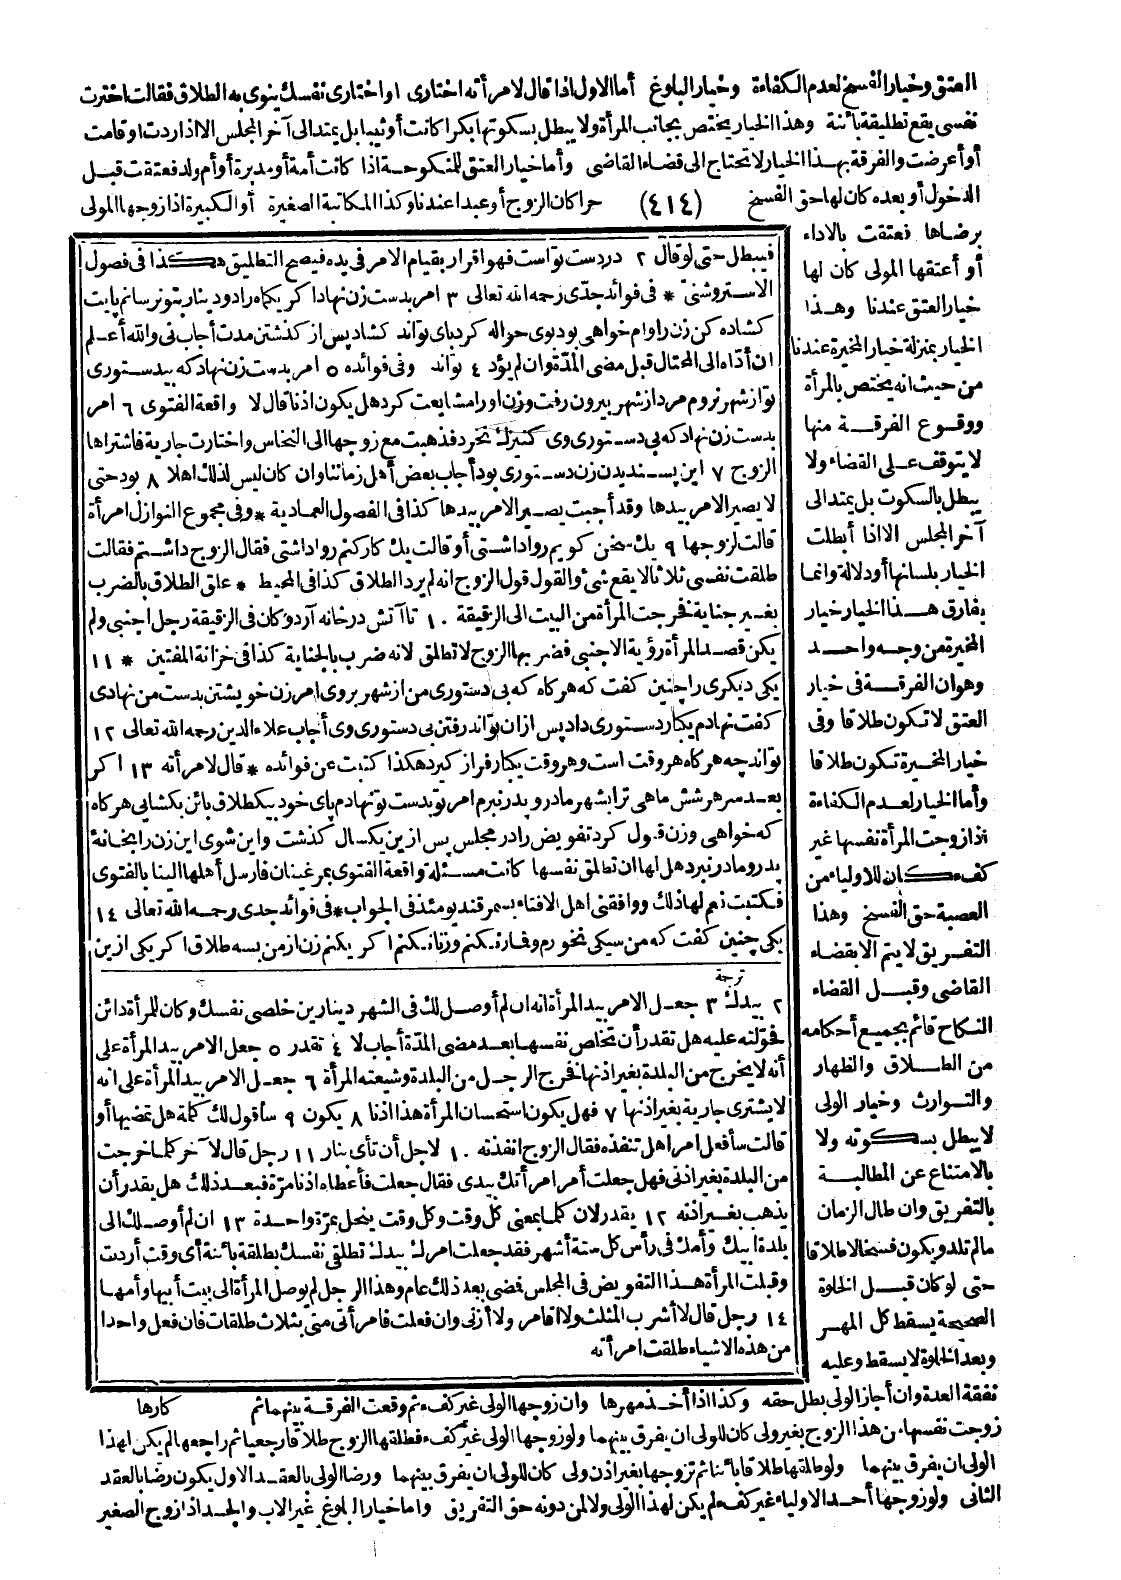 العتق وخيار الفسخ لعدم الكفاءة وخيار البلوغ أما الاول اذا قال لامرأته اختارى او اختارى نفسك ينوى به الطلاق فقالت اخترت
نفسى يقع تطليقة بائنة وهذا الخيار يختص بجانب المرأة ولا يبطل بسكوتها بكرا كانت أو ثيبا بل يمتد الى آخر المجلس الا اذا ردت او قامت
أو أعرضت والفرقة بهذا الخيار لا تحتاج الى قضاء القاضى وأما خيار العتق للمنكوحة اذا كانت أمة أو مدبرة أو أم ولد فعتقت قبل
الدخول أو بعده كان لها حق الفسخ (٤١٤) حرا كان الزوج أو عبدا عندنا وكذا المكاتبة الصغيرة أو الكبيرة اذا زوجها المولى
برضاها فعتقت بالاداء
أو أعتقها المولى كان لها
خيار العتق عندنا وهذا
الخيار بمنزلة خيار المخيرة عندنا
من حيث انه يختص بالمرأة
ووقوع الفرقة منها
لا يتوقف على القضاء ولا
يبطل بالسكوت بل يمتد الى
آخر المجلس الا اذا أبطلت
الخيار بلسانها أو دلالة وانما
يفارق هذا الخيار خيار
المخيرة من وجه واحد
وهو ان الفرقة فى خيار
العتق لا تكون طلاقا وفى
خيار المخيرة تكون طلاقا
وأما الخيار لعدم الكفاءة
اذا زوجت المرأة نفسها غير
كفء كان للاولياء من
العصبة حق الفسخ وهذا
التفريق لا يتم الا بقضاء
القاضى وقبل القضاء
النكاح قائم بجميع أحكامه
من الطلاق والظهار
والتوارث وخيار الولى
لا يبطل بسكوته ولا
بالامتناع عن المطالبة
بالتفريق وان طال الزمان
مالم تلد ويكون فسخا لا طلاقا
حتى لو كان قبل الخلوة
الصحيحة يسقط كل المهر
وبعد الخلوة لا يسقط وعليه
فيبطل حتى لو قال ٢ در دست تواست فهو اقرار بقيام الامر فى يده فيصح التطليق هكذا فى فصول
الاستروشنى * فى فوائد جدّى رحمه الله تعالى ٣ امر بدست زن نهاد اكر يكماه را دو دينار بتو نرسانم پايت
كشاده كن زن را وام خواهى بود بوى حواله كرد باى تواند كشاد پس از كذشتن مدت أجاب نى والله أعلم
ان أدّاه الى المحتال قبل مضى المدّة وان لم يؤد ٤ تواند وفى فوائده ٥ امر بدست زن نهاد كه بيدستورى
تو از شهر نروم مرد از شهر بيرون رفت وزن او را مشايعت كرد هل يكون اذنا قال لا واقعة الفتوى ٦ امر
بدست زن نهاد كه بى دستورى وى كنيزك نخرد فذهبت مع زوجها الى النخاس واختارت جارية فاشتراها
الزوج ٧ اين پسنديدن زن دستورى بود أجاب بعض أهل زماننا وان كان ليس لذلك اهلا ٨ بود حتى
لا يصير الامر بيدها وقد أجبت يصير الامر بيدها كذا فى الفصول العمادية * وفى مجموع النوازل امرأة
قالت لزوجها ٩ يك سخن كويم روا داشتى أو قالت يك كار كنم روا داشتى فقال الزوج داشتم فقالت
طلقت نفسى ثلاثا لا يقع شئ والقول قول الزوج انه لم يرد الطلاق كذا فى المحيط * علق الطلاق بالضرب
بغير جناية فخرجت المرأة من البيت الى الزقيقة ١٠ تا آتش در خانه آرد وكان فى الزقيقة رجل اجنبى ولم
يكن قصد المرأة رؤية الاجنبى فضربها الزوج لا تطلق لانه ضرب بالجناية كذا فى خزانة المفتين * ١١
يكى ديكرى را چنين كفت كه هركاه كه بى دستورى من از شهر بروى امر زن خويشتن بدست من نهادى
كفت نهادم يكبار دستورى داد پس ازان تواند رفتن بى دستورى وى أجاب علاء الدين رحمه الله تعالى ١٢
تواند چه هركاه هر وقت است وهر وقت يكبار فراز كيرد هكذا كتبت عن فوائده * قال لامرأته ١٣ اكر
بعد سر هر شش ماهى ترا بشهر مادر و پدر نبرم امر تو بدست تو نهادم پاى خود بيك طلاق بائن بكشايى هركاه
كه خواهى وزن قبول كرد تفويض را در مجلس پس از ين يكسال كذشت واين شوى اين زن را بخانه
پدر ومادر نبرد هل لها ان تطلق نفسها كانت مسئلة واقعة الفتوى بمرغينان فارسل أهلها الينا بالفتوى
فكتبت نعم لها ذلك ووافقنى اهل الافتاء بسمرقند يومئذ فى الجواب * فى فوائد جدى رحمه الله تعالى ١٤
يكى چنين كفت كه من سيكى نخورم وقمار نكنم وزنا نكنم اكر يكنم زن از من بسه طلاق اكر يكى از ين
ترجمة
٢ بيدك ٣ جعل الامر بيد المرأة انه ان لم أوصل لك فى الشهر دينارين خلصى نفسك وكان للمرأة دائن
فحوّلته عليه هل تقدر أن تخلص نفسها بعد مضى المدّة أجاب لا ٤ تقدر ٥ جعل الامر بيد المرأة على
أنه لا يخرج من البلدة بغير اذنها فخرج الرجل من البلدة وشيعته المرأة ٦ جعل الامر بيد المرأة على انه
لا يشترى جارية بغير اذنها ٧ فهل يكون استحسان المرأة هذا اذنا ٨ يكون ٩ سأقول لك كلمة هل تمضيها أو
قالت سأفعل امرا هل تنفذه فقال الزوج انفذته ١٠ لاجل أن تأتى بنار ١١ رجل قال لآخر كلما خرجت
من البلدة بغير اذنى فهل جعلت أمر امرأتك بيدى فقال جعلت فأعطاه اذنا مرّة فبعد ذلك هل يقدر أن
يذهب بغير اذنه ١٢ يقدر لان كلما بمعنى كل وقت وكل وقت ينحل بمرّة واحدة ١٣ ان لم أوصلك الى
بلدة ابيك وأمك فى رأس كل ستة أشهر فقد جعلت امرك بيدك تطلقى نفسك بطلقة بائنة أى وقت أردت
وقبلت المرأة هذا التفويض فى المجلس فمضى بعد ذلك عام وهذا الرجل لم يوصل المرأة الى بيت أبيها وأمها
١٤ رجل قال لا أشرب المثلث ولا اقامر ولا أزنى وان فعلت فامرأتى منى بثلاث طلقات فان فعل واحدا
من هذه الاشياء طلقت امرأته
نفقة العدة وان أجاز الولى بطل حقه وكذا اذا أخذ مهرها وان زوجها الولى غير كفء ثم وقعت الفرقة بينهما ثم كارها
زوجت نفسها من هذا الزوج بغير ولى كان للولى ان يفرق بينهما ولو زوجها الولى غير كفء فطلقها الزوج طلاقا رجعيا ثم راجعها لم يكن لهذا
الولى ان يفرق بينهما ولو طلقها طلاقا بائنا ثم تزوجها بغير اذن ولى كان للولى ان يفرق بينهما ورضا الولى بالعقد الاول يكون رضا بالعقد
الثانى ولو زوجها أحد الاولياء غير كفء لم يكن لهذا الولى ولا لمن دونه حق التفريق واما خيار البلوغ غير الاب والجد اذا زوج الصغير